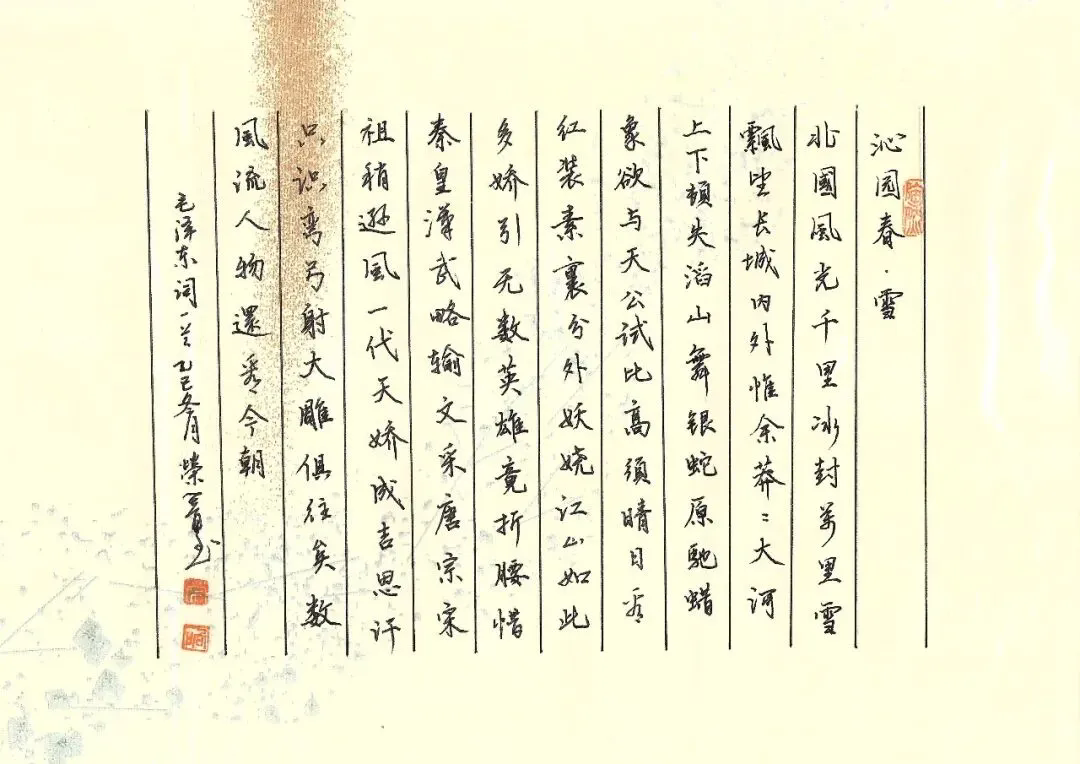 沁园春·雪
北國風光千里冰封萬里雪
飄望长城内外惟余莽〻大河
上下顿失滔山舞银蛇原馳蜡
象欲与天公试比高须晴日看
红装素裹分外妖娆江山如此
多娇引无数英雄竟折腰惜
秦皇漢武略输文采唐宗宋
祖稍逊風一代天娇成吉思汗
只识弯弓射大雕俱往矣数
風流人物還看今朝
毛泽东词一首乙巳冬月榮